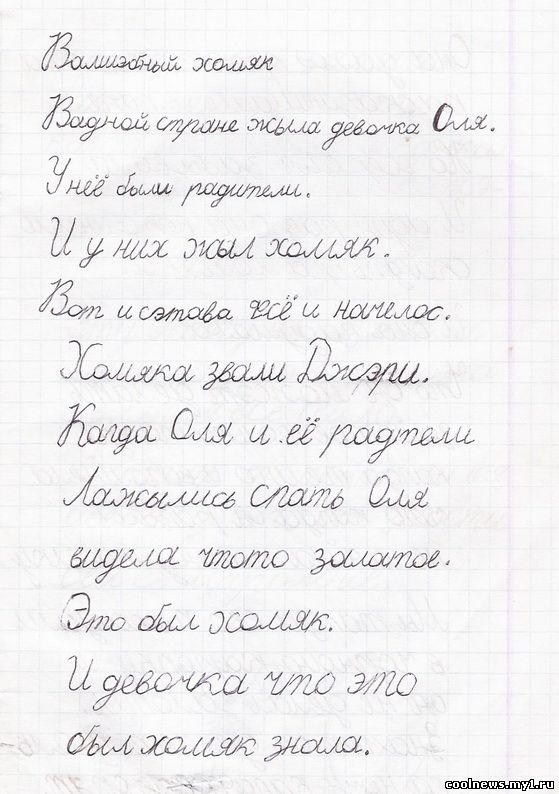 Валшэбный хомяк
Вадной стране жыла девочка Оля.
У неё были радители.
И у них жыл хомяк.
Вот и сэтава фсё и начелос.
Хомяка звали Джэри.
Кагда Оля и её радтели
Лажылись спать Оля
видела чтото залатое.
Это был хомяк.
И девочка что это
был хомяк знала.
coolnews.my1.ru